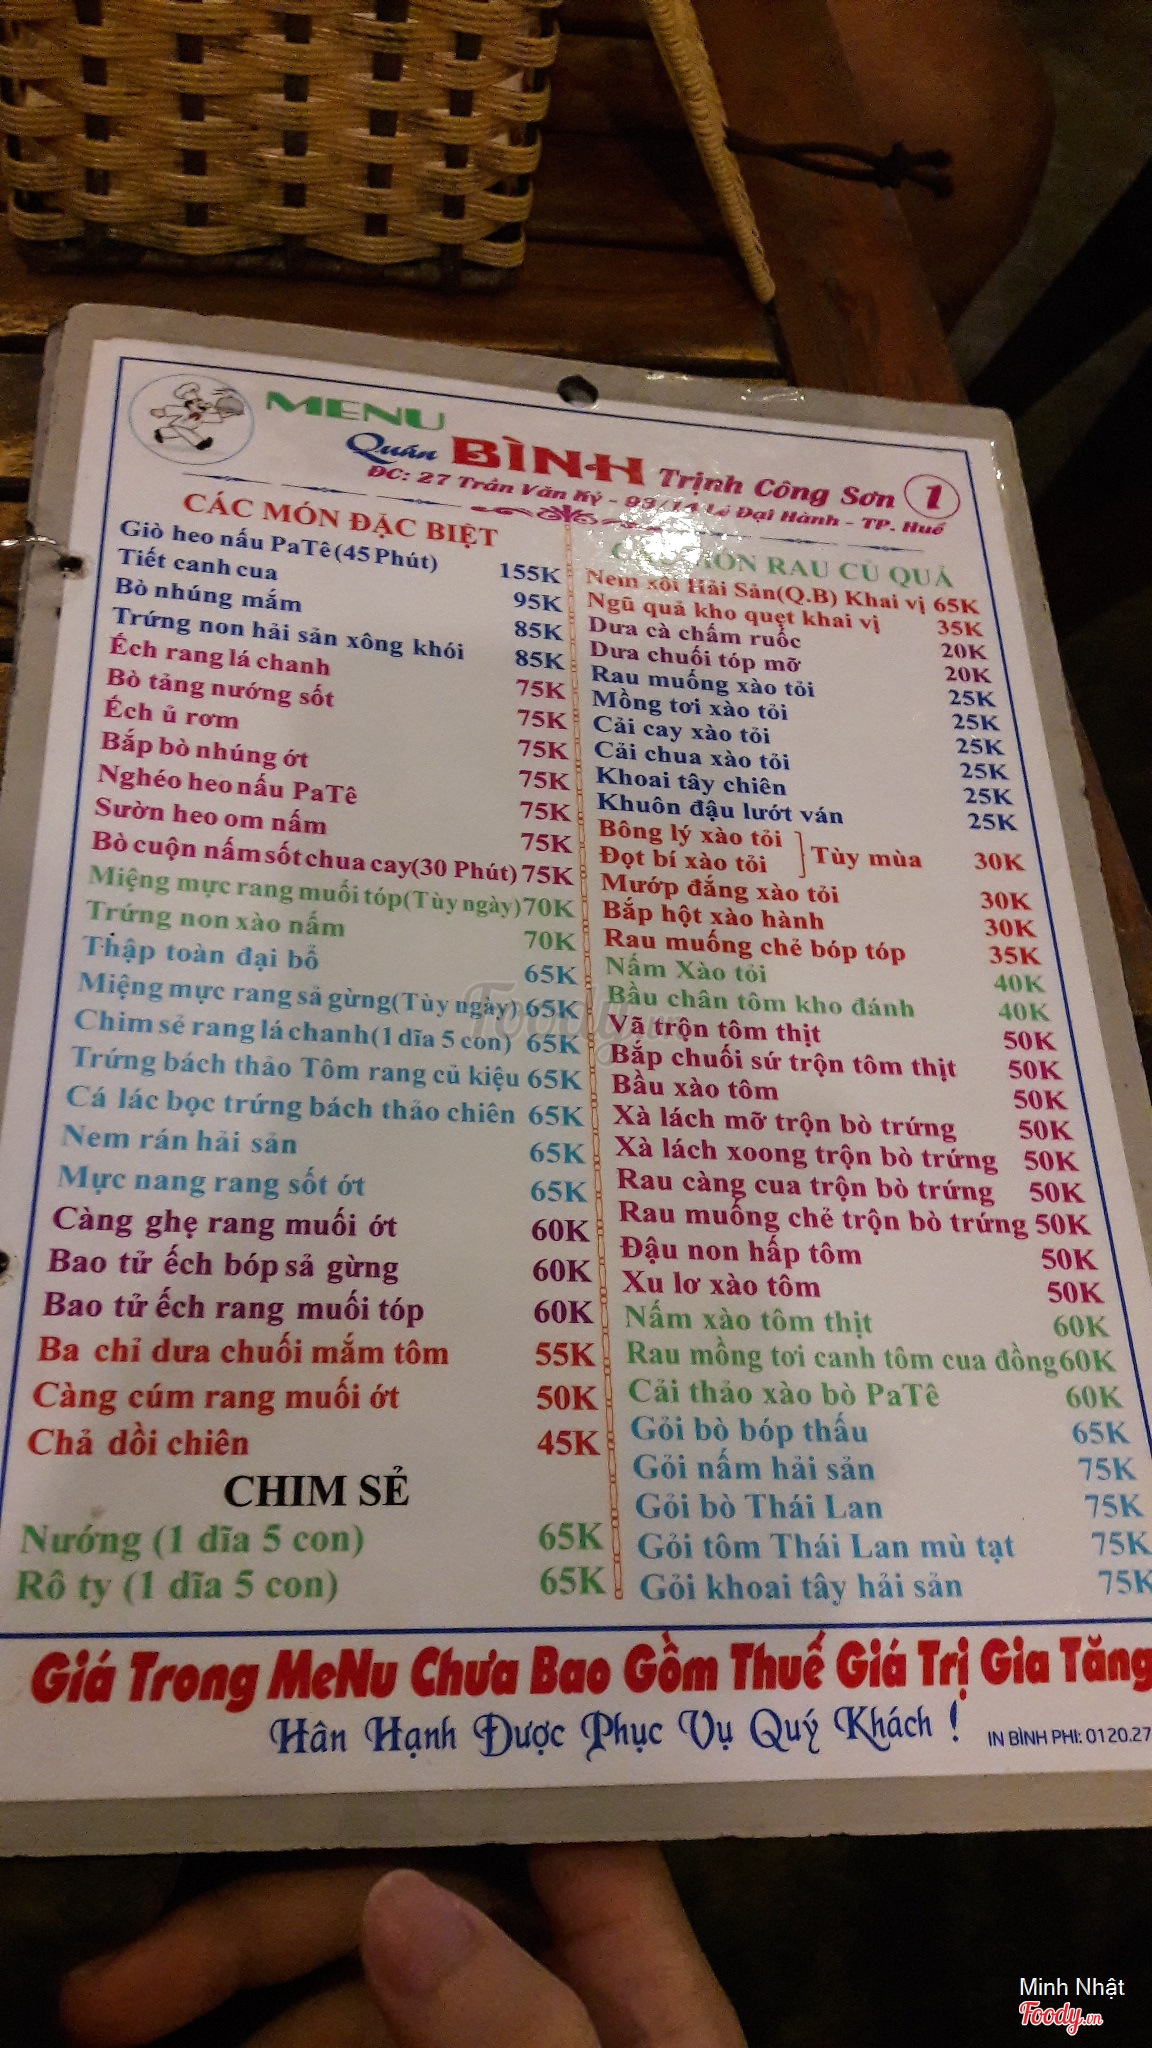 MENU
Quán BÌNH Trịnh Công Sơn 1
ĐC: 27 Trần Văn Kỷ - 93/14 Lê Đại Hành - TP. Huế
CÁC MÓN ĐẶC BIỆT
Giò heo nấu PaTê(45 Phút) 155K
Tiết canh cua 95K
Bò nhúng mắm 85K
Trứng non hải sản xông khói 85K
Ếch rang lá chanh 75K
Bò tảng nướng sốt 75K
Ếch ủ rơm 75K
Bắp bò nhúng ớt 75K
Nghéo heo nấu PaTê 75K
Sườn heo om nấm 75K
Bò cuộn nấm sốt chua cay(30 Phút) 75K
Miệng mực rang muối tóp(Tùy ngày) 70K
Trứng non xào nấm 70K
Thập toàn đại bổ 65K
Miệng mực rang sả gừng(Tùy ngày) 65K
Chim sẻ rang lá chanh(1 dĩa 5 con) 65K
Trứng bách thảo Tôm rang củ kiệu 65K
Cá lác bọc trứng bách thảo chiên 65K
Nem rán hải sản 65K
Mực nang rang sốt ớt 65K
Càng ghẹ rang muối ớt 60K
Bao tử ếch bóp sả gừng 60K
Bao tử ếch rang muối tóp 60K
Ba chỉ dưa chuối mắm tôm 55K
Càng cúm rang muối ớt 50K
Chả dồi chiên 45K
CHIM SẺ
Nướng (1 dĩa 5 con) 65K
Rô ty (1 dĩa 5 con) 65K
MÓN RAU CỦ QUẢ
Nem xôi Hải Sản(Q.B) Khai vị 65K
Ngũ quả kho quẹt khai vị 35K
Dưa cà chấm ruốc 20K
Dưa chuối tóp mỡ 20K
Rau muống xào tỏi 25K
Mồng tơi xào tỏi 25K
Cải cay xào tỏi 25K
Cải chua xào tỏi 25K
Khoai tây chiên 25K
Khuôn đậu lướt ván 25K
Bông lý xào tỏi
Đọt bí xào tỏi Tùy mùa 30K
Mướp đắng xào tỏi 30K
Bắp hột xào hành 30K
Rau muống chẻ bóp tóp 35K
Nấm Xào tỏi 40K
Bầu chân tôm kho đánh 40K
Vã trộn tôm thịt 50K
Bắp chuối sứ trộn tôm thịt 50K
Bầu xào tôm 50K
Xà lách mỡ trộn bò trứng 50K
Xà lách xoong trộn bò trứng 50K
Rau càng cua trộn bò trứng 50K
Rau muống chẻ trộn bò trứng 50K
Đậu non hấp tôm 50K
Xu lơ xào tôm 50K
Nấm xào tôm thịt 60K
Rau mồng tơi canh tôm cua đồng 60K
Cải thảo xào bò PaTê 60K
Gỏi bò bóp thấu 65K
Gỏi nấm hải sản 75K
Gỏi bò Thái Lan 75K
Gỏi tôm Thái Lan mù tạt 75K
Gỏi khoai tây hải sản 75K
Giá Trong MeNu Chưa Bao Gồm Thuế Giá Trị Gia Tăng
Hân Hạnh Được Phục Vụ Quý Khách !
IN BÌNH PHI: 0120.27
Foody.vn
Minh Nhật
Foody.vn